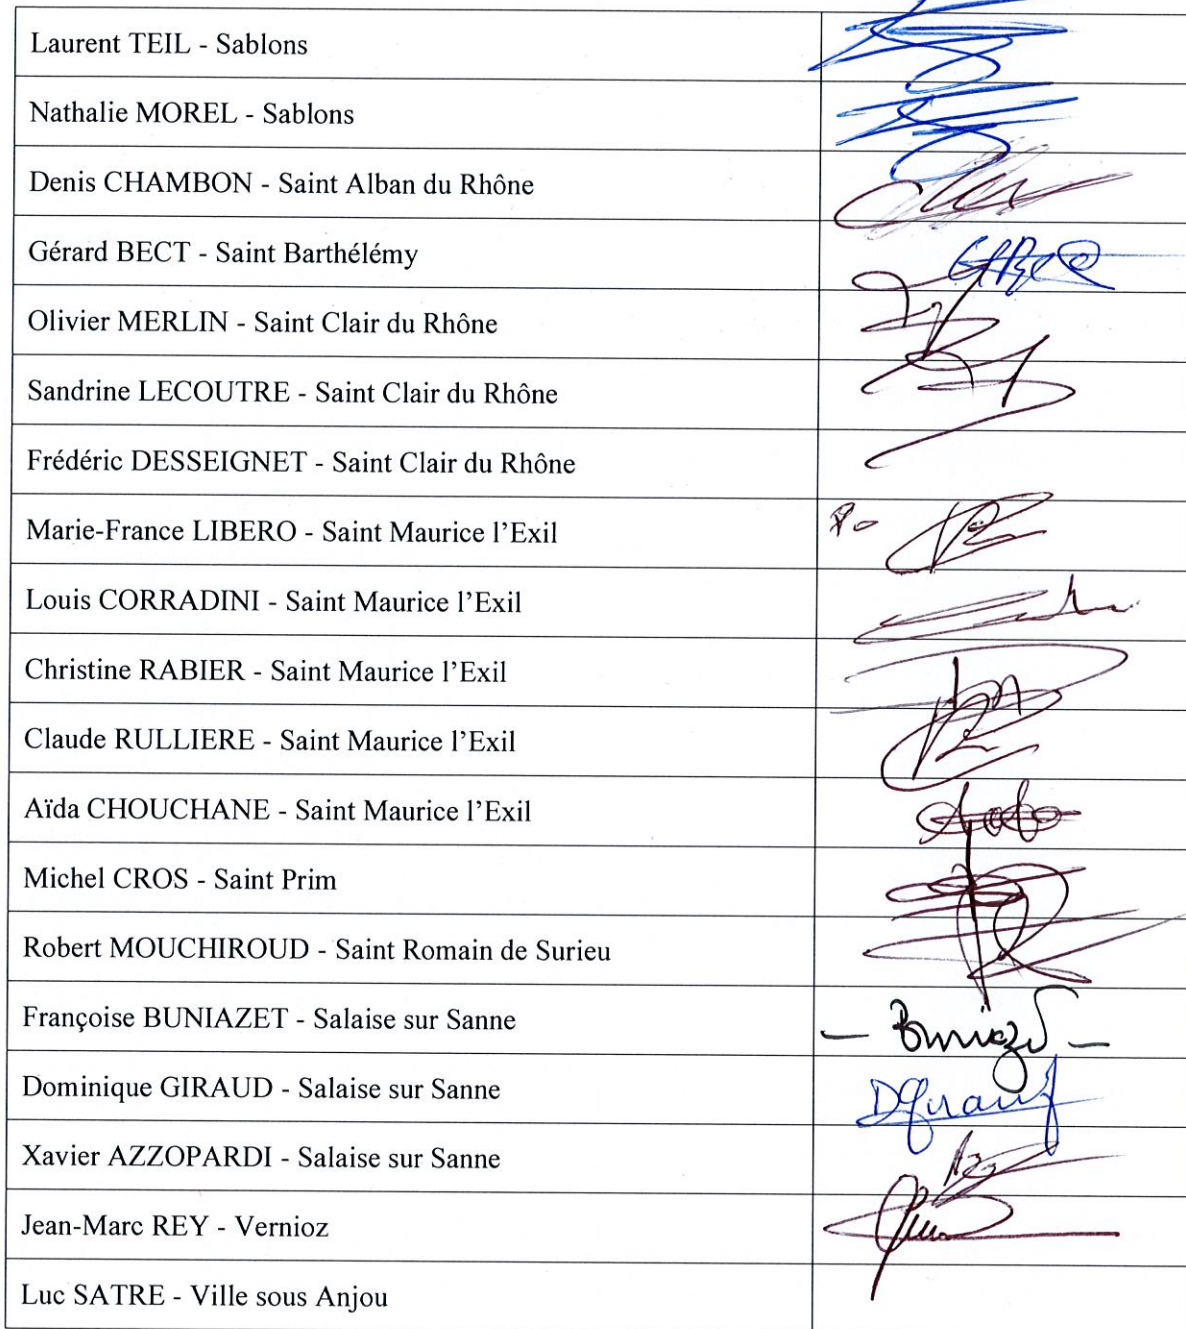 Laurent TEIL - Sablons
Nathalie MOREL - Sablons
Denis CHAMBON - Saint Alban du Rhône
Gérard BECT - Saint Barthélémy
Olivier MERLIN - Saint Clair du Rhône
Sandrine LECOUTRE - Saint Clair du Rhône
Frédéric DESSEIGNET - Saint Clair du Rhône
Marie-France LIBERO - Saint Maurice l'Exil
Louis CORRADINI - Saint Maurice l'Exil
Christine RABIER - Saint Maurice l'Exil
Claude RULLIERE - Saint Maurice l'Exil
Aïda CHOUCHANE - Saint Maurice l'Exil
Michel CROS - Saint Prim
Robert MOUCHIROUD - Saint Romain de Surieu
Françoise BUNIAZET - Salaise sur Sanne
Dominique GIRAUD - Salaise sur Sanne DGiraud
Xavier AZZOPARDI - Salaise sur Sanne
Jean-Marc REY - Vernioz
Luc SATRE - Ville sous Anjou